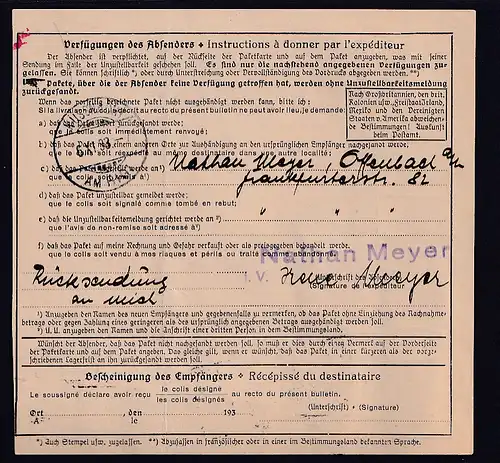 Verfügungen des Absenders • Instructions à donner par l'expéditeur
Der Absender ist verpflichtet, auf der Rückseite der Paketkarte und auf dem Paket anzugeben, was mit seiner
Sendung im Falle der Unzustellbarkeit geschehen soll. Es sind nur die nachstehend angegebenen Verfügungen zu-
gelassen. Sie können schriftlich*) oder durch Unterstreichung oder Vervollständigung des Vordrucks abgegeben werden. **)
Pakete, über die der Absender keine Verfügung getroffen hat, werden ohne Unzustellbarkeitsmeldung
zurückgesandt.
Nach Großbritannien, den brit.
Kolonien usw.
Freistaat Irland,
und den Vereinigten
Staaten v. Amerika abweichen-
de Bestimmungen! Auskunft
beim Postamt.
Wenn das vorseitig bezeichnete Paket nicht ausgehändigt werden kann, bitte ich:
au recto du présent bulletin ne peut être livré, je demande:
a) daß das Paket sofort zurückgesandt werde:
le colis soit immédiatement renvoyé:
an einen andern Ort zur Aushändigung an den ursprünglichen Empfänger nachgesandt werde:
soit réexpédié au une autre localité:
Nathan Meyer, Offenbach a/M
Frankfurterstr. 82
le colis soit
AM
d) daß das Paket unzustellbar gemeldet werde:
que le colis soit signalé comme tombé en rebut;
e) daß die Unzustellbarkeitsmeldung gerichtet werde an ²)
que l'avis de non-remise soit adressé à ²)
f) daß das Paket auf meine Rechnung und Gefahr verkauft oder als preisgegeben behandelt werde.
que le colis soit vendu à mes risques et périls ou traité comme abandonné.
Nathan Meyer
i. V. Meyer
Rücksendung
an mich
(Unterschrift des Absenders)
(Signature de l'expéditeur)
¹) Anzugeben den Namen des neuen Empfängers und gegebenenfalls zu vermerken, ob das Paket ohne Einziehung des Nachnahme-
betrags oder gegen Zahlung eines geringeren als des ursprünglich angegebenen Betrags ausgehändigt werden soll.
²) U. U. anzugeben den Namen und die Anschrift einer dritten Person in dem Bestimmungsland.
Wünscht der Absender, daß das Paket nicht nachgesandt werden soll, so muß er dies durch einen Vermerk auf der Vorderseite
der Paketkarte und auf dem Paket angeben. Das gleiche gilt, wenn er wünscht, daß das Paket in einer kürzeren als der vorge-
schriebenen Lagerfrist an ihn zurückgesandt werden soll.
Bescheinigung des Empfängers • Récépissé du destinataire
Le soussigné déclare avoir reçu le colis désigné
les colis désignés au recto du présent bulletin.
Ort , den 193
A le
(Unterschrift) (Signature)
*) Auch Stempel usw. zugelassen. **) Abzufassen in französischer oder in einer im Bestimmungsland bekannten Sprache.